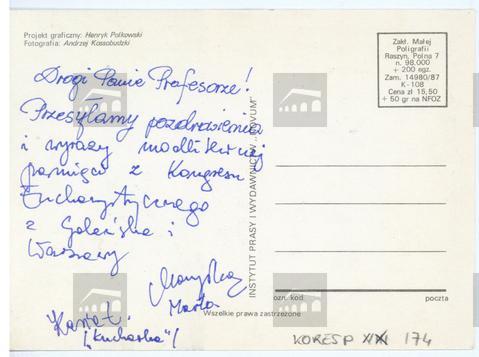 Projekt graficzny: Henryk Polkowski
Fotografia: Andrzej Kossobudzki
Zakł. Małej
Poligrafii
Raszyn, Polna 7
n. 98.000
+ 200 egz.
Zam. 14980/87
K-108
Cena zł 15,50
+ 50 gr na NFOZ
Drogi Panie Profesorze!
Przesyłamy pozdrowienia
i wyrazy modlitewnej
pamięci z Kongresu
Eucharystycznego
z Gdańska i
Warszawy
Marta
("Kucharka")
INSTYTUT PRASY I WYDAWNICTW „NOVUM”
kod
poczta
Wszelkie prawa zastrzeżone
KORESP XIX 174